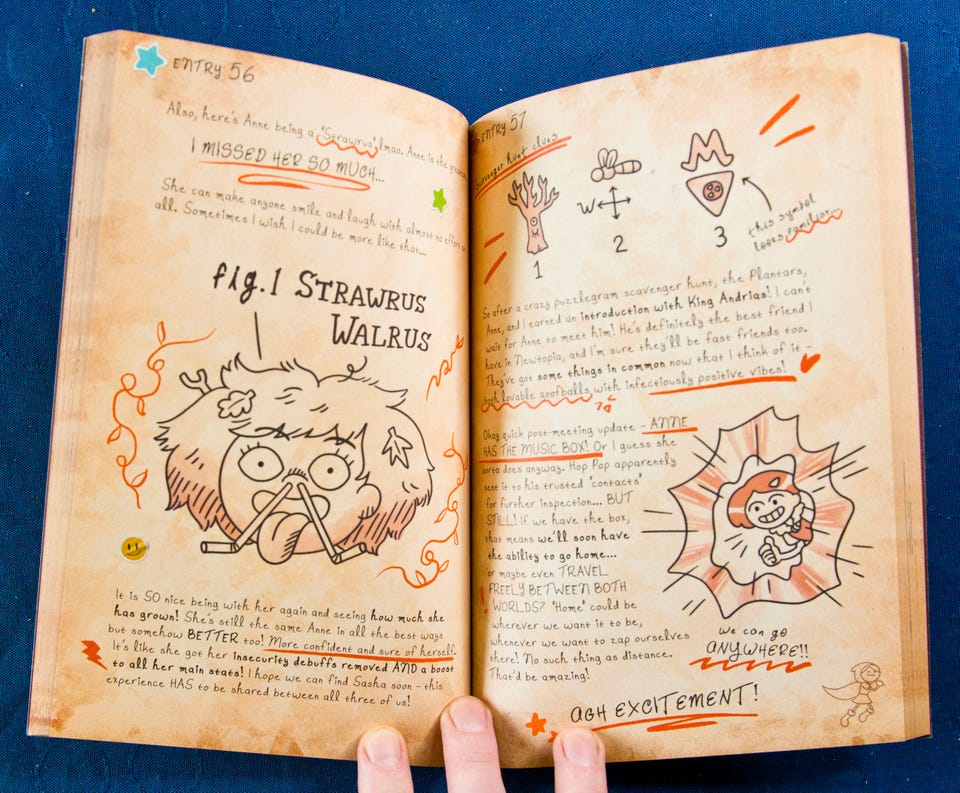 ENTRY 56
Also, here's Anne being a "Strawrus" lmao. Anne is the greatest
I MISSED HER SO MUCH...
She can make anyone smile and laugh with almost no effort at
all. Sometimes I wish I could be more like that...
fig.1 STRAWRUS
WALRUS
It is SO nice being with her again and seeing how much she
has grown! She's still the same Anne in all the best ways
but somehow BETTER too! More confident and sure of herself.
It's like she got her insecurity debuffs removed AND a boost
to all her main stats! I hope we can find Sasha soon - this
experience HAS to be shared between all three of us!
ENTRY 57
Scavenger hunt clues
M
W
1
2
3
this symbol
looks familiar...
So after a crazy puzzlegram scavenger hunt, the Plantars,
Anne, and I earned an introduction with King Andrias! I can't
wait for Anne to meet him! He's definitely the best friend I
have in Newtopia, and I'm sure they'll be fast friends too.
They've got some things in common now that I think of it -
both lovable goofballs with infectiously positive vibes!
Okay quick post-meeting update - ANNE
HAS THE MUSIC BOX! Or I guess she
sorta does anyway. Hop Pop apparently
sent it to his trusted "contacts"
for further inspection... BUT
STILL! If we have the box,
that means we'll soon have
the ability to go home...
or maybe even TRAVEL
FREELY BETWEEN BOTH
WORLDS? "Home" could be
wherever we want it to be,
whenever we want to zap ourselves
there! No such thing as distance.
That'd be amazing!
We can go
ANYWHERE!!
AGH EXCITEMENT!